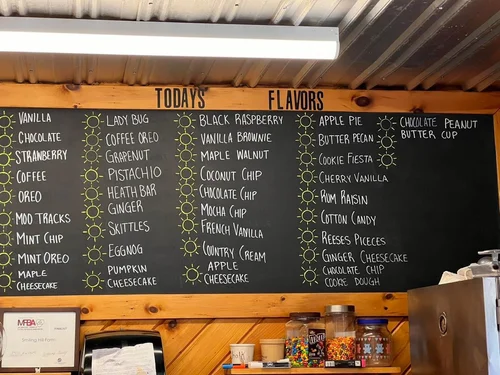 TODAYS FLAVORS
VANILLA
CHOCOLATE
STRAWBERRY
COFFEE
OREO
MOO TRACKS
MINT CHIP
MINT OREO
MAPLE
CHEESECAKE
LADY BUG
COFFEE OREO
GRAPENUT
PISTACHIO
HEATH BAR
GINGER
SKITTLES
EGGNOG
PUMPKIN
CHEESECAKE
BLACK RASPBERRY
VANILLA BROWNIE
MAPLE WALNUT
COCONUT CHIP
CHOCOLATE CHIP
MOCHA CHIP
FRENCH VANILLA
COUNTRY CREAM
APPLE
CHEESECAKE
APPLE PIE
BUTTER PECAN
COOKIE FIESTA
CHERRY VANILLA
RUM RAISIN
COTTON CANDY
REESES PICECES
GINGER CHEESECAKE
CHOCOLATE CHIP
COOKIE DOUGH
CHOCOLATE PEANUT
BUTTER CUP
MFBA